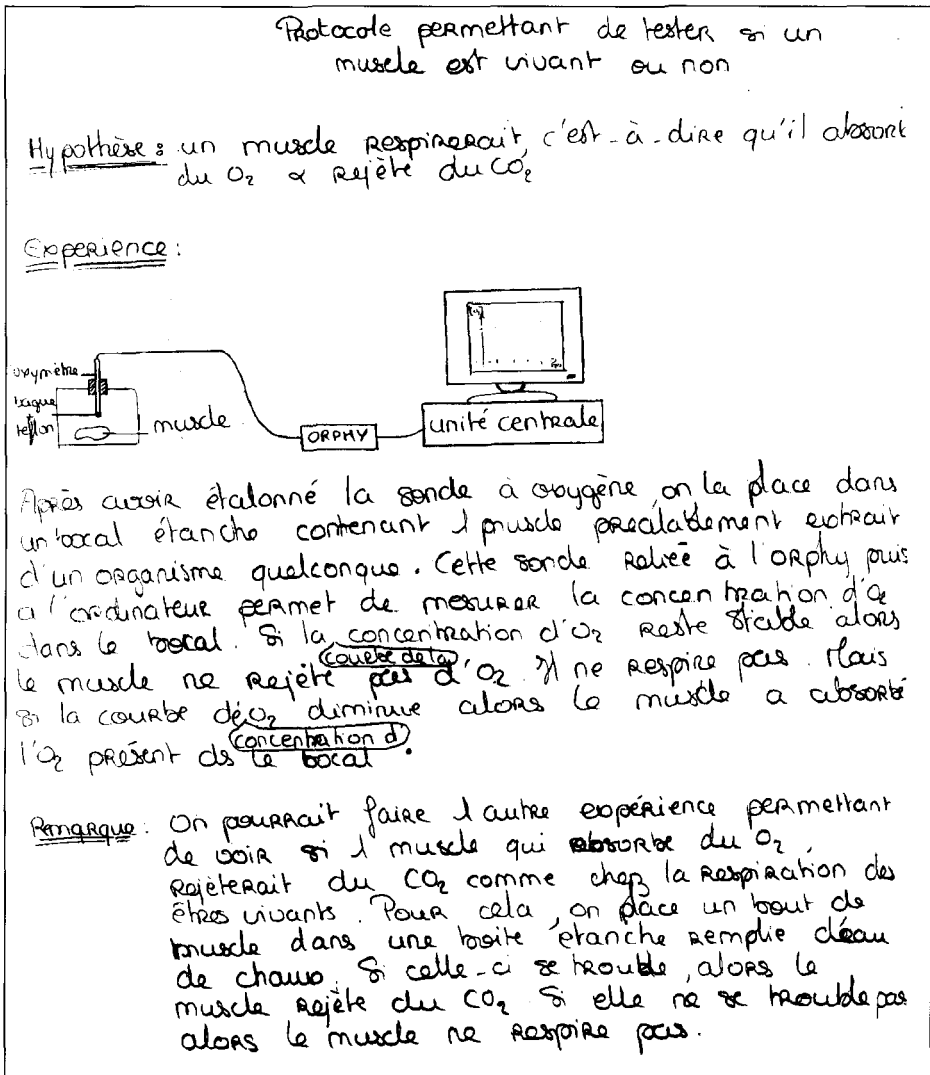 Protocole permettant de tester si un
muscle est vivant ou non
Hypothèse : un muscle respirerait, c'est-à-dire qu'il absort
du O₂ & rejète du CO₂
Experience :
oxymètre
bague
teflon
muscle
ORPHY
unité centrale
Après avoir étalonné la sonde à oxygène, on la place dans
un bocal étanche contenant 1 muscle préalablement extrait
d'un organisme quelconque. Cette sonde reliée à l'orphy puis
a l'ordinateur permet de mesurer la concentration d'O₂
dans le bocal. Si la concentration d'O₂ reste stable alors
courbe de la
le muscle ne rejète pas d'O₂. Il ne respire pas. Mais
si la courbe de O₂ diminue alors le muscle a absorbé
concentration d'
l'O₂ présent ds le bocal.
Remarque : On pourrait faire 1 autre expérience permettant
de voir si 1 muscle qui absorbe du O₂,
rejèterait du CO₂ comme chez la respiration des
êtres vivants. Pour cela, on place un bout de
muscle dans une boite étanche remplie d'eau
de chaux. Si celle-ci se trouble, alors le
muscle rejète du CO₂ Si elle ne se trouble pas
alors le muscle ne respire pas.